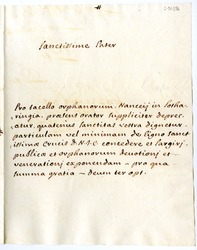 Sanctissime Pater
Pro sacello orphanorum, Nanceij in Lotha
ringia, præsens orator suppliciter deprec
atur, quatenus sanctitas vestra dignetur
particulam vel minimam de ligno sanct
issimæ Crucis D. N. J. C. concedere et largiri
publicæ et orphanorum devotioni et
venerationi exponendam – pro qua
summa gratia – Deum ter opt.